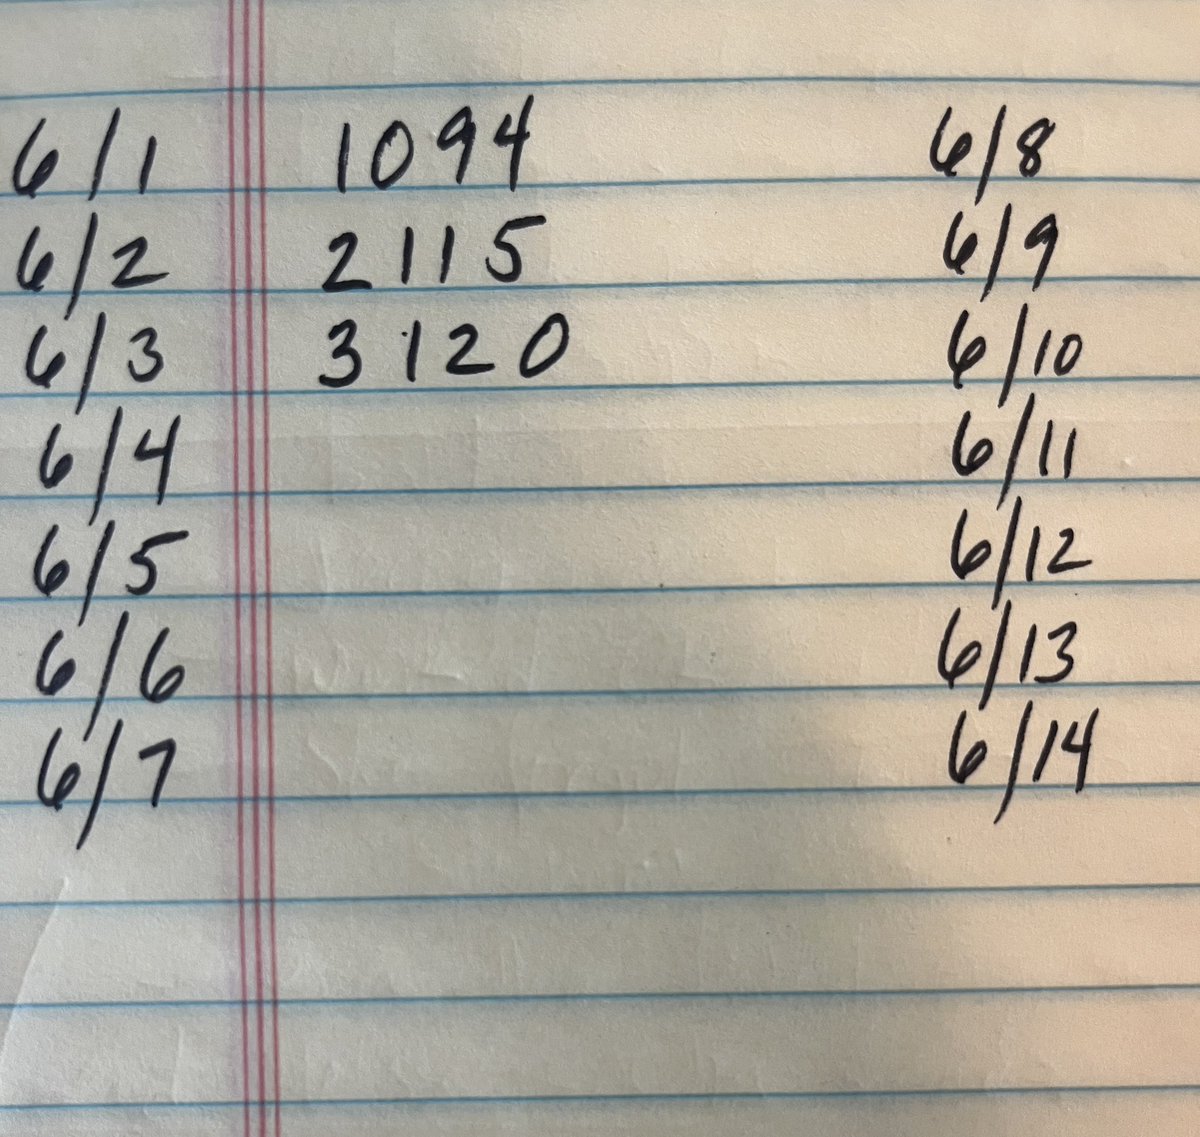 6/1 1094 6/8
6/2 2115 6/9
6/3 3120 6/10
6/4 6/11
6/5 6/12
6/6 6/13
6/7 6/14